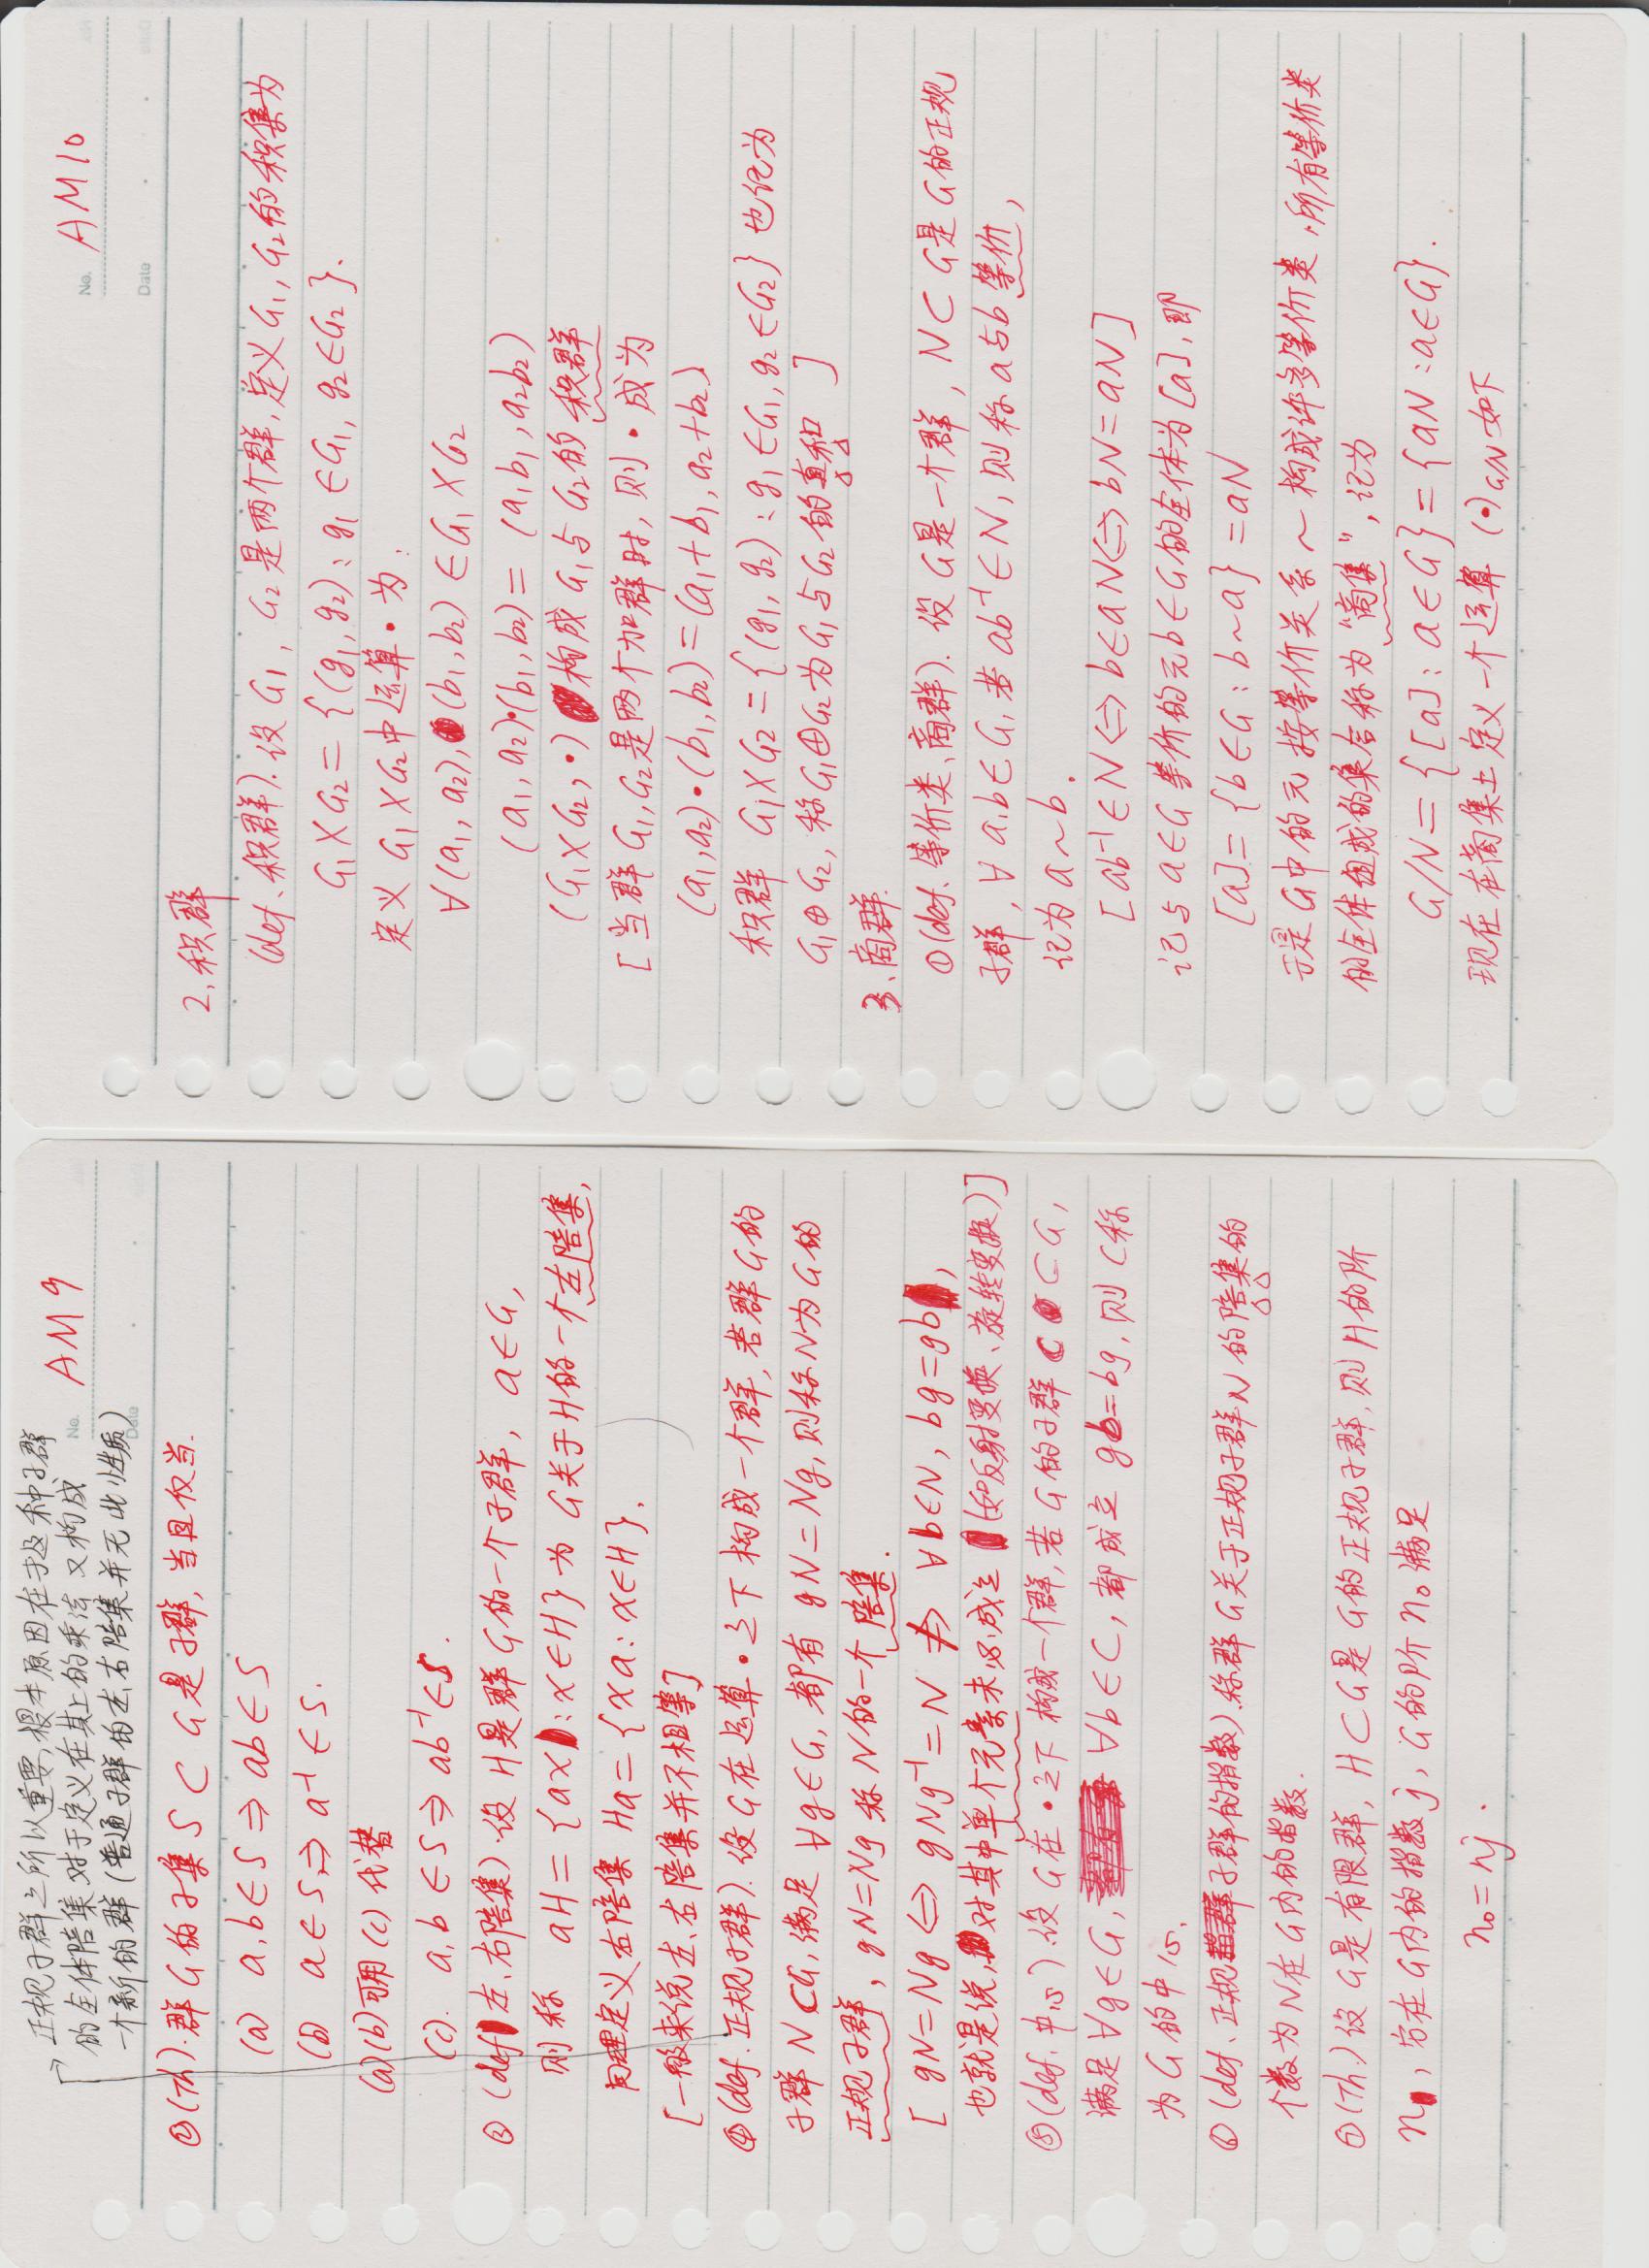 正规子群之所以重要,根本原因在于这种子群
的全体陪集对于定义在其上的乘法又构成
一个新的群(普通子群的左、右陪集并无此性质)
No. AM 9
Date
②(Th).群G的子集S⊂G是子群,当且仅当.
(a) a,b∈S⇒ab∈S
(b) a∈S⇒a⁻¹∈S.
(a)(b)可用(c)代替
(c). a,b∈S⇒ab⁻¹∈S.
③(def 左、右陪集).设H是群G的一个子群, a∈G,
则称 aH={ax:x∈H}为 G关于H的一个左陪集,
同理定义右陪集 Ha={xa:x∈H}.
[一般来说左、右陪集并不相等]
④(def.正规子群).设G在运算·之下构成一个群,若群G的
子群N⊂G,满足∀g∈G,都有 gN=Ng,则称N为G的
正规子群, gN=Ng称N的一个陪集.
[gN=Ng⇔gNg⁻¹=N⇏∀b∈N, bg=gb,
也就是说,对其中单个元素未必成立(如反射变换、旋转变换)]
⑤(def.中心).设G在·之下构成一个群,若G的子群C⊂G,
满足∀g∈G, ∀b∈C,都成立 gb=bg,则C称
为G的中心.
⑥(def.正规子群的指数).称群G关于正规子群N的陪集的
个数为N在G内的指数.
⑦(Th.)设G是有限群, H⊂G是G的正规子群,则H的阶
n,它在G内的指数j, G的阶n₀满足
n₀=nj.
No. AM10
Date
2.积群
(def.积群).设G₁, G₂是两个群,定义G₁, G₂的积集为
G₁×G₂={(g₁,g₂):g₁∈G₁, g₂∈G₂}.
定义G₁×G₂中运算·为:
∀(a₁,a₂),(b₁,b₂)∈G₁×G₂
(a₁,a₂)·(b₁,b₂)=(a₁b₁,a₂b₂)
(G₁×G₂,·)构成G₁与G₂的积群
[当群G₁,G₂是两个加群时,则·成为
(a₁,a₂)·(b₁,b₂)=(a₁+b₁,a₂+b₂)
积群 G₁×G₂={(g₁,g₂):g₁∈G₁,g₂∈G₂}也记为
G₁⊕G₂,称G₁⊕G₂为G₁与G₂的直和]
3.商群.
①(def.等价类、商群).设G是一个群, N⊂G是G的正规
子群, ∀a,b∈G,若ab⁻¹∈N,则称a与b等价,
记为a~b.
[ab⁻¹∈N⇔b∈aN⇔bN=aN]
记与a∈G等价的元b∈G的全体为[a],即
[a]={b∈G:b~a}=aN
于是G中的元按等价关系~构成许多等价类,所有等价类
的全体组成的集合称为“商集”,记为
G/N={[a]:a∈G}={aN:a∈G}.
现在在商集上定义一个运算(·)G/N如下